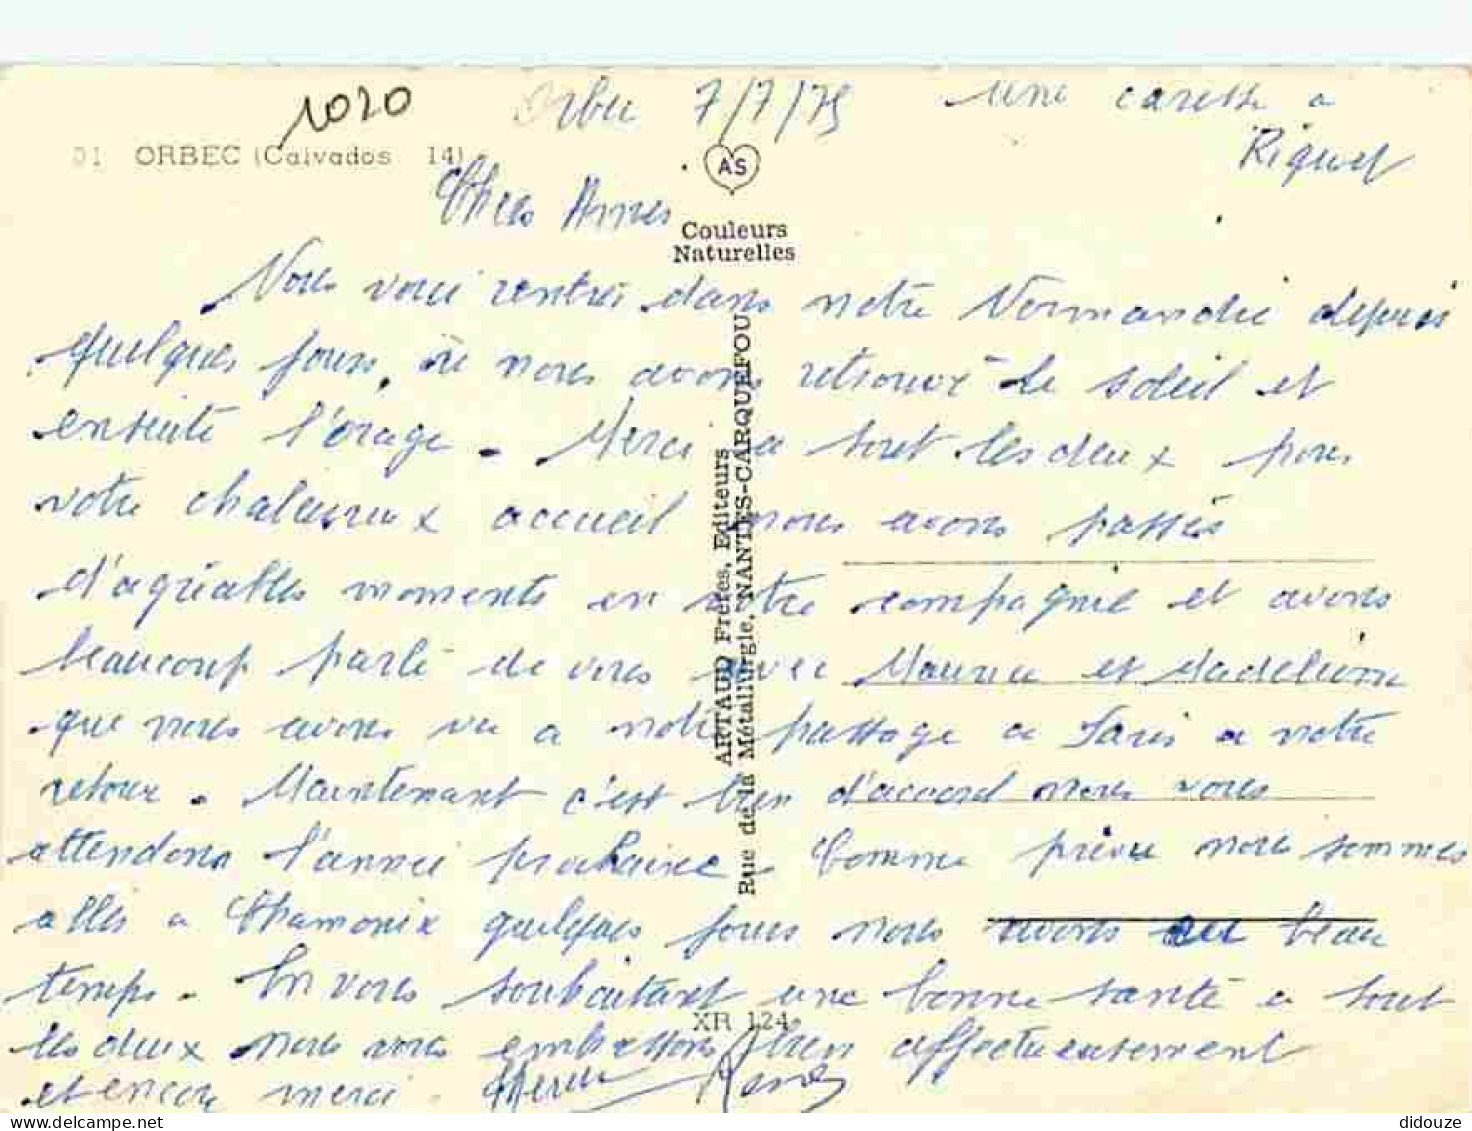 1020
Orbec 7/7/75 une caresse a
Riquet
01 ORBEC (Calvados 14)
AS
Couleurs
Naturelles
Chers Amis
Nous voici rentrés dans notre Normandie depuis
quelques jours, où nous avons retrouvé le soleil et
ensuite l'orage. Merci a tout les deux pour
votre chaleureux accueil nous avons passés
d'agréables moments en votre compagnie et avons
beaucoup parlé de vous avec Maurice et Madeleine
que nous avons vu a notre passage a Paris a notre
retour. Maintenant c'est bien d'accord nous vous
attendons l'année prochaine. Comme prévu nous sommes
allés a Chamonix quelques jours nous avons eu beau
temps. En vous souhaitant une bonne santé a tout
les deux nous vous embrassons bien affectueusement
et encore merci.
ARTAUD Frères, Editeurs
Rue de la Métallurgie, NANTES-CARQUEFOU
XR 124
didouze